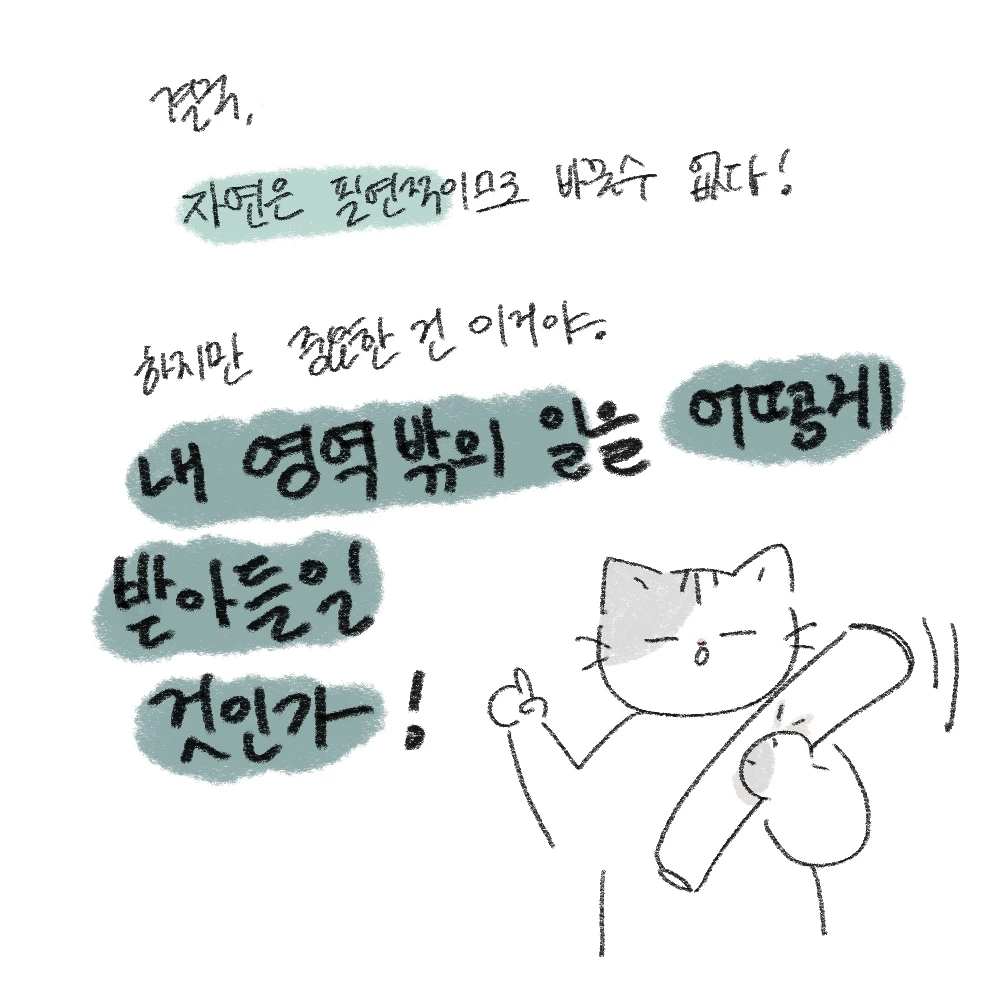 결국,
자연은 필연적이므로 바꿀수 없다!
하지만 중요한 건 이거야.
내 영역 밖의 일을 어떻게
받아들일
것인가!